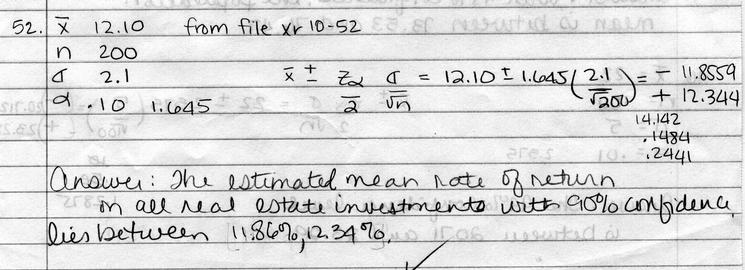 52. x̄ 12.10 from file xr 10-52
n 200
σ 2.1 x̄ ± Zα/2 σ/√n = 12.10 ± 1.645 (2.1/√200) = - 11.8559
α .10 1.645 + 12.344
14.142
.1484
.2441
Answer: The estimated mean rate of return
in all real estate investments with 90% confidence
lies between 11.86%, 12.34%.